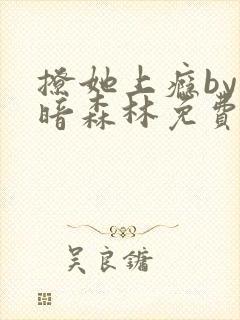 撩她上瘾by
暗森林免費
吴良镛